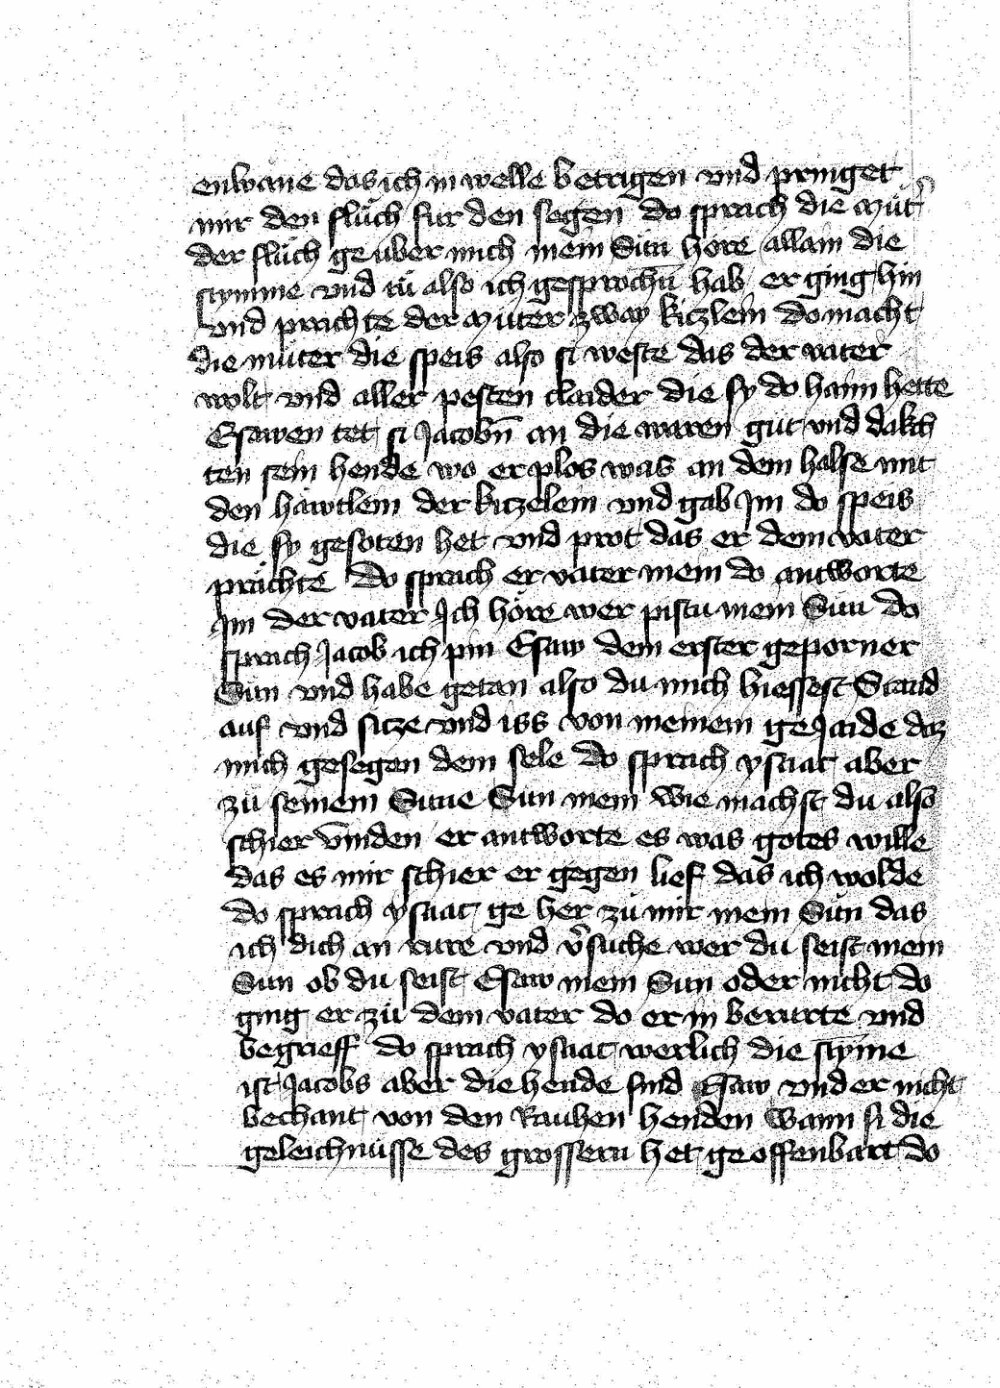 enwane das ich in welle betrigen vnd pringet
mir den flüch fur den segen do sprach die mut̉
der flüch ge uber mich mein Sün höre allain die
stymme vnd tü also ich gesprochn̄ hab er ging hin
vnd prachte der muter zway kiczlein do macht
die müter die speis also si weste das der vater
wolt vnd aller pesten claider die sy do haim hette
Esawen tet si Jacobn̄ an die waren güt vnd dakch
ten sein hende wo er plos was an dem halse mit
den häwtlein der kiczelein vnd gab Im do speis
die sy gesoten het vnd prot das er dem vater
prächte Do sprach er vater mein do antworte
Im der vater Ich höre wer pistu mein Sun do
sprach Jacob ich pin Esaw dein erster geporner
Sun vnd habe getan also du mich hiessest Stand
auf vnd sitze vnd iss von meinem geJaide daz
mich gesegen dein sele do sprach ysaac aber
zü seinem Sune Sun mein wie machst du also
schier vinden er antworte es was gotes wille
das es mir schier er gegen lief das ich wolde
do sprach ysaac ge her zü mir mein Sün das
ich dich an rure vnd v̉suche wer du seist mein
Sun ob du seist Esaw mein Sun oder nicht do
ging er zü dem vater do er in berurte vnd
begraeff do sprach ysaac werlich die stȳme
ist Jacobs aber die hende sind Esaw vnd er nicht
bechant von den Rauhen henden wann si die
geleichnüsse des grossern het geoffenbart do